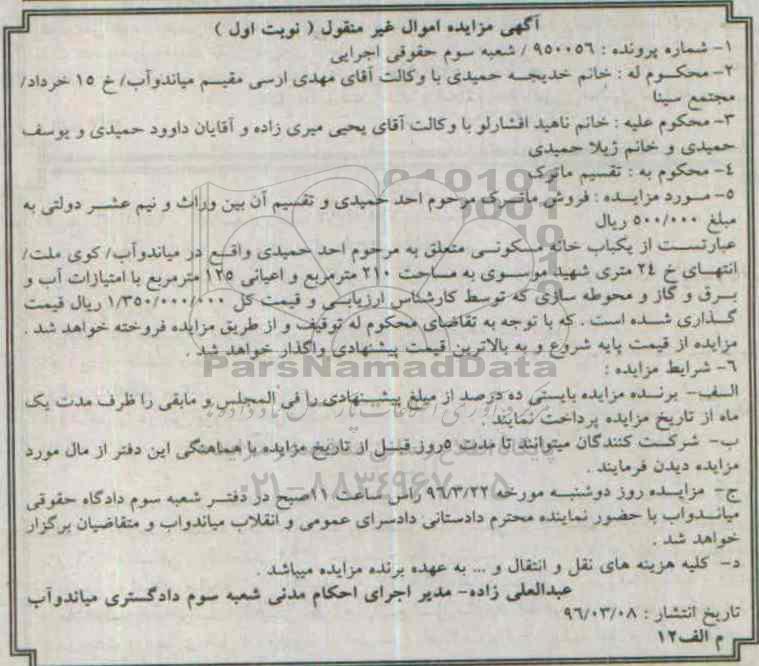 آگهی مزایده اموال غیر منقول ( نوبت اول )
۱- شماره پرونده : ۹۵۰۰۵۶ / شعبه سوم حقوقی اجرایی
۲- محکوم له : خانم خدیجه حمیدی با وکالت آقای مهدی ارسی مقیم میاندوآب/ خ ۱۵ خرداد/
مجتمع سینا
۳- محکوم علیه : خانم ناهید افشارلو با وکالت آقای یحیی میری زاده و آقایان داوود حمیدی و یوسف
حمیدی و خانم ژیلا حمیدی
۴- محکوم به : تقسیم ماترک
۵- مورد مزایده : فروش ماترک مرحوم احد حمیدی و تقسیم آن بین وراث و نیم عشر دولتی به
مبلغ ۵۰۰/۰۰۰ ریال
عبارتست از یکباب خانه مسکونی متعلق به مرحوم احد حمیدی واقع در میاندوآب/ کوی ملت/
انتهای خ ۲۴ متری شهید موسوی به مساحت ۲۱۰ مترمربع و اعیانی ۱۲۵ مترمربع با امتیازات آب و
برق و گاز و محوطه سازی که توسط کارشناس ارزیابی و قیمت کل ۱/۳۵۰/۰۰۰/۰۰۰ ریال قیمت
گذاری شده است . که با توجه به تقاضای محکوم له توقیف و از طریق مزایده فروخته خواهد شد .
مزایده از قیمت پایه شروع و به بالاترین قیمت پیشنهادی واگذار خواهد شد .
ParsNamadData
۶- شرایط مزایده :
الف- برنده مزایده بایستی ده درصد از مبلغ پیشنهادی را فی المجلس و مابقی را ظرف مدت یک
ماه از تاریخ مزایده پرداخت نمایند .
ب- شرکت کنندگان میتوانند تا مدت ۵روز قبل از تاریخ مزایده با هماهنگی این دفتر از مال مورد
مزایده دیدن فرمایند .
۰۲۱-۸۸۳۴۹۶۷۰-۵
ج- مزایده روز دوشنبه مورخه ۹۶/۳/۲۲ راس ساعت ۱۱صبح در دفتر شعبه سوم دادگاه حقوقی
میاندواب با حضور نماینده محترم دادستانی دادسرای عمومی و انقلاب میاندواب و متقاضیان برگزار
خواهد شد .
د- کلیه هزینه های نقل و انتقال و ... به عهده برنده مزایده میباشد .
عبدالعلی زاده- مدیر اجرای احکام مدنی شعبه سوم دادگستری میاندوآب
تاریخ انتشار : ۹۶/۰۳/۰۸
م الف۱۲